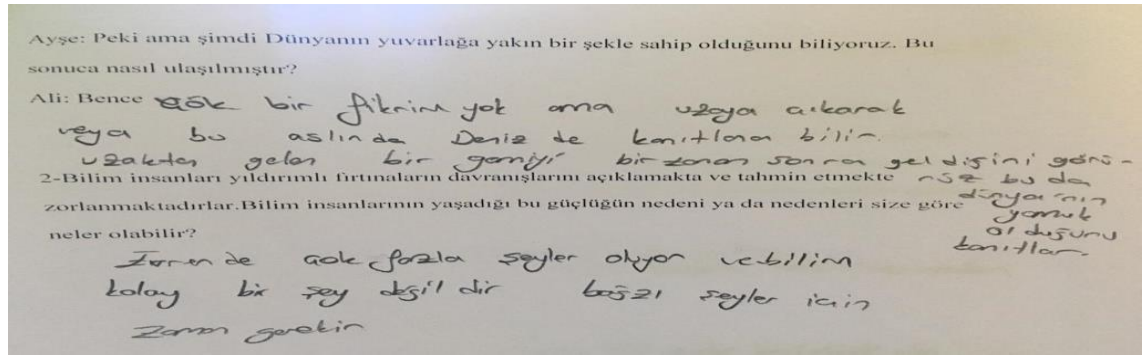 Ayşe: Peki ama şimdi Dünyanın yuvarlağa yakın bir şekle sahip olduğunu biliyoruz. Bu
sonuca nasıl ulaşılmıştır?
Ali: Bence çok bir fikrim yok ama uzaya çıkarak
veya bu aslında Deniz de kanıtlana bilir.
uzakten gelen bir gemiyi bir zaman sonra geldiğini görü-
nüz bu da
dünya'nın
yamuk
olduğunu
kanıtlar.
2-Bilim insanları yıldırımlı fırtınaların davranışlarını açıklamakta ve tahmin etmekte
zorlanmaktadırlar.Bilim insanlarının yaşadığı bu güçlüğün nedeni ya da nedenleri size göre
neler olabilir?
çok fazla şeyler oluyor ve bilim
kolay bir şey değil dir bağzı şeyler için
zaman gerekir